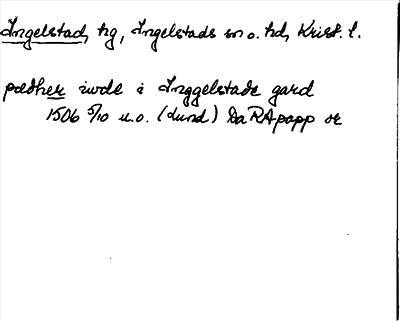 Ingelstad, hg, Ingelstads sn o. hd, Krist. l.
pædher iwde i Inggelstade gard
1506 5/10 u.o. (Lund) DaRApapp or